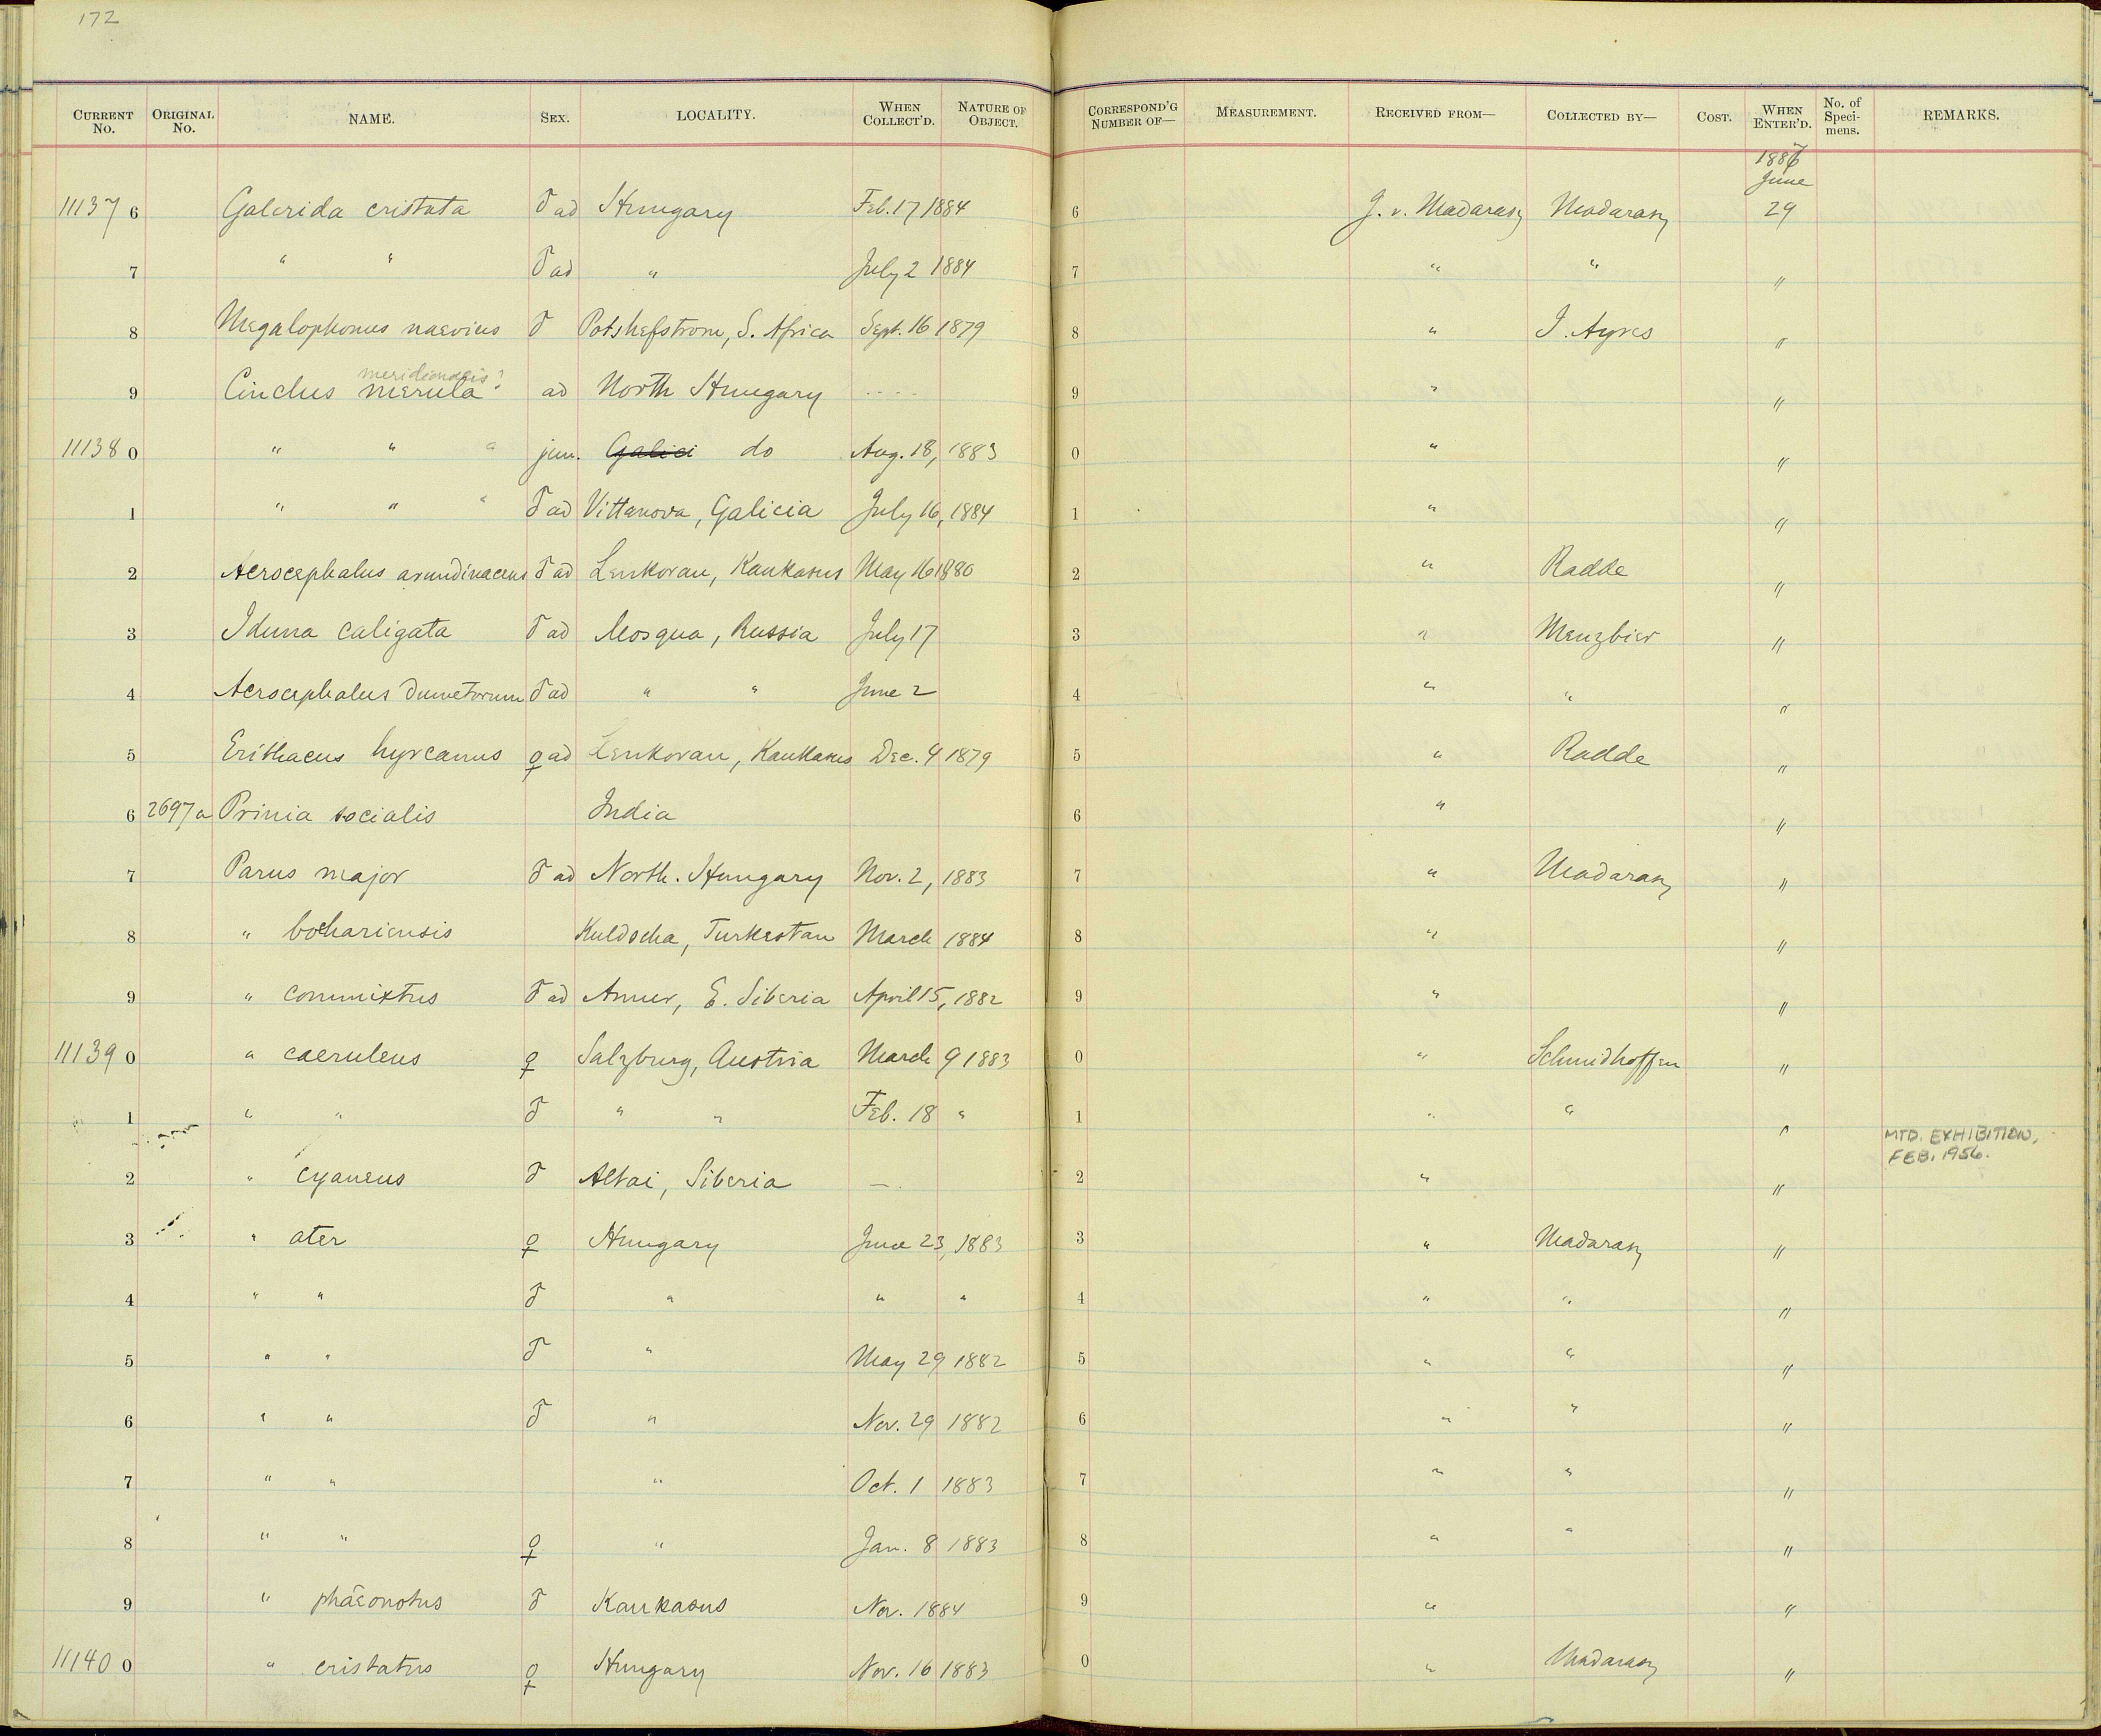 172
CURRENT No. ORIGINAL No. NAME. SEX. LOCALITY. WHEN COLLECT'D. NATURE OF OBJECT. CORRESPOND'G NUMBER OF— MEASUREMENT. RECEIVED FROM— COLLECTED BY— COST. WHEN ENTER'D. No. of Specimens. REMARKS.
1887
June
11137 6 Galerida cristata ♂ ad Hungary Feb. 17 1884 6 J. v. Madarasz Madarasz 29
7 " " ♂ ad " July 2 1884 7 " " "
8 Megalophonus naevius ♂ Potshefstrom, S. Africa Sept. 16 1879 8 " J. Ayres "
meridionalis?
9 Cinclus merula ad North Hungary .... 9 " "
11138 0 " " " juv. Galici do Aug. 18, 1883 0 " "
1 " " " ♂ ad Vittanova, Galicia July 16, 1884 1 " "
2 Acrocephalus arundinaceus ♂ ad Lenkoran, Kaukasus May 16 1880 2 " Radde "
3 Iduna caligata ♂ ad Mosqua, Russia July 17 3 " Menzbier "
4 Acrocephalus dumetorum ♂ ad " " June 2 4 " " "
5 Erithacus hyrcanus ♀ ad Lenkoran, Kaukasus Dec. 4 1879 5 " Radde "
6 2697a Prinia socialis India 6 " "
7 Parus major ♂ ad North. Hungary Nov. 2, 1883 7 " Madarasz "
8 " bochariensis Kuldscha, Turkestan March 1884 8 " "
9 " commixtus ♂ ad Amur, E. Siberia April 15, 1882 9 " "
11139 0 " caeruleus ♀ Salzburg, Austria March 9 1883 0 " Schmidhoffen "
1 " " ♂ " " Feb. 18 " 1 " " "
MTD. EXHIBITION,
FEB. 1956.
2 " cyaneus ♂ Altai, Siberia — 2 " "
3 " ater ♀ Hungary June 23, 1883 3 " Madarasz "
4 " " ♂ " " " 4 " " "
5 " " ♂ " May 29 1882 5 " " "
6 " " ♂ " Nov. 29 1882 6 " " "
7 " " " Oct. 1 1883 7 " " "
8 " " ♀ " Jan. 8 1883 8 " " "
9 " phaeonotus ♂ Kaukasus Nov. 1884 9 " "
11140 0 " cristatus ♀ Hungary Nov. 16 1883 0 " Madarasz "